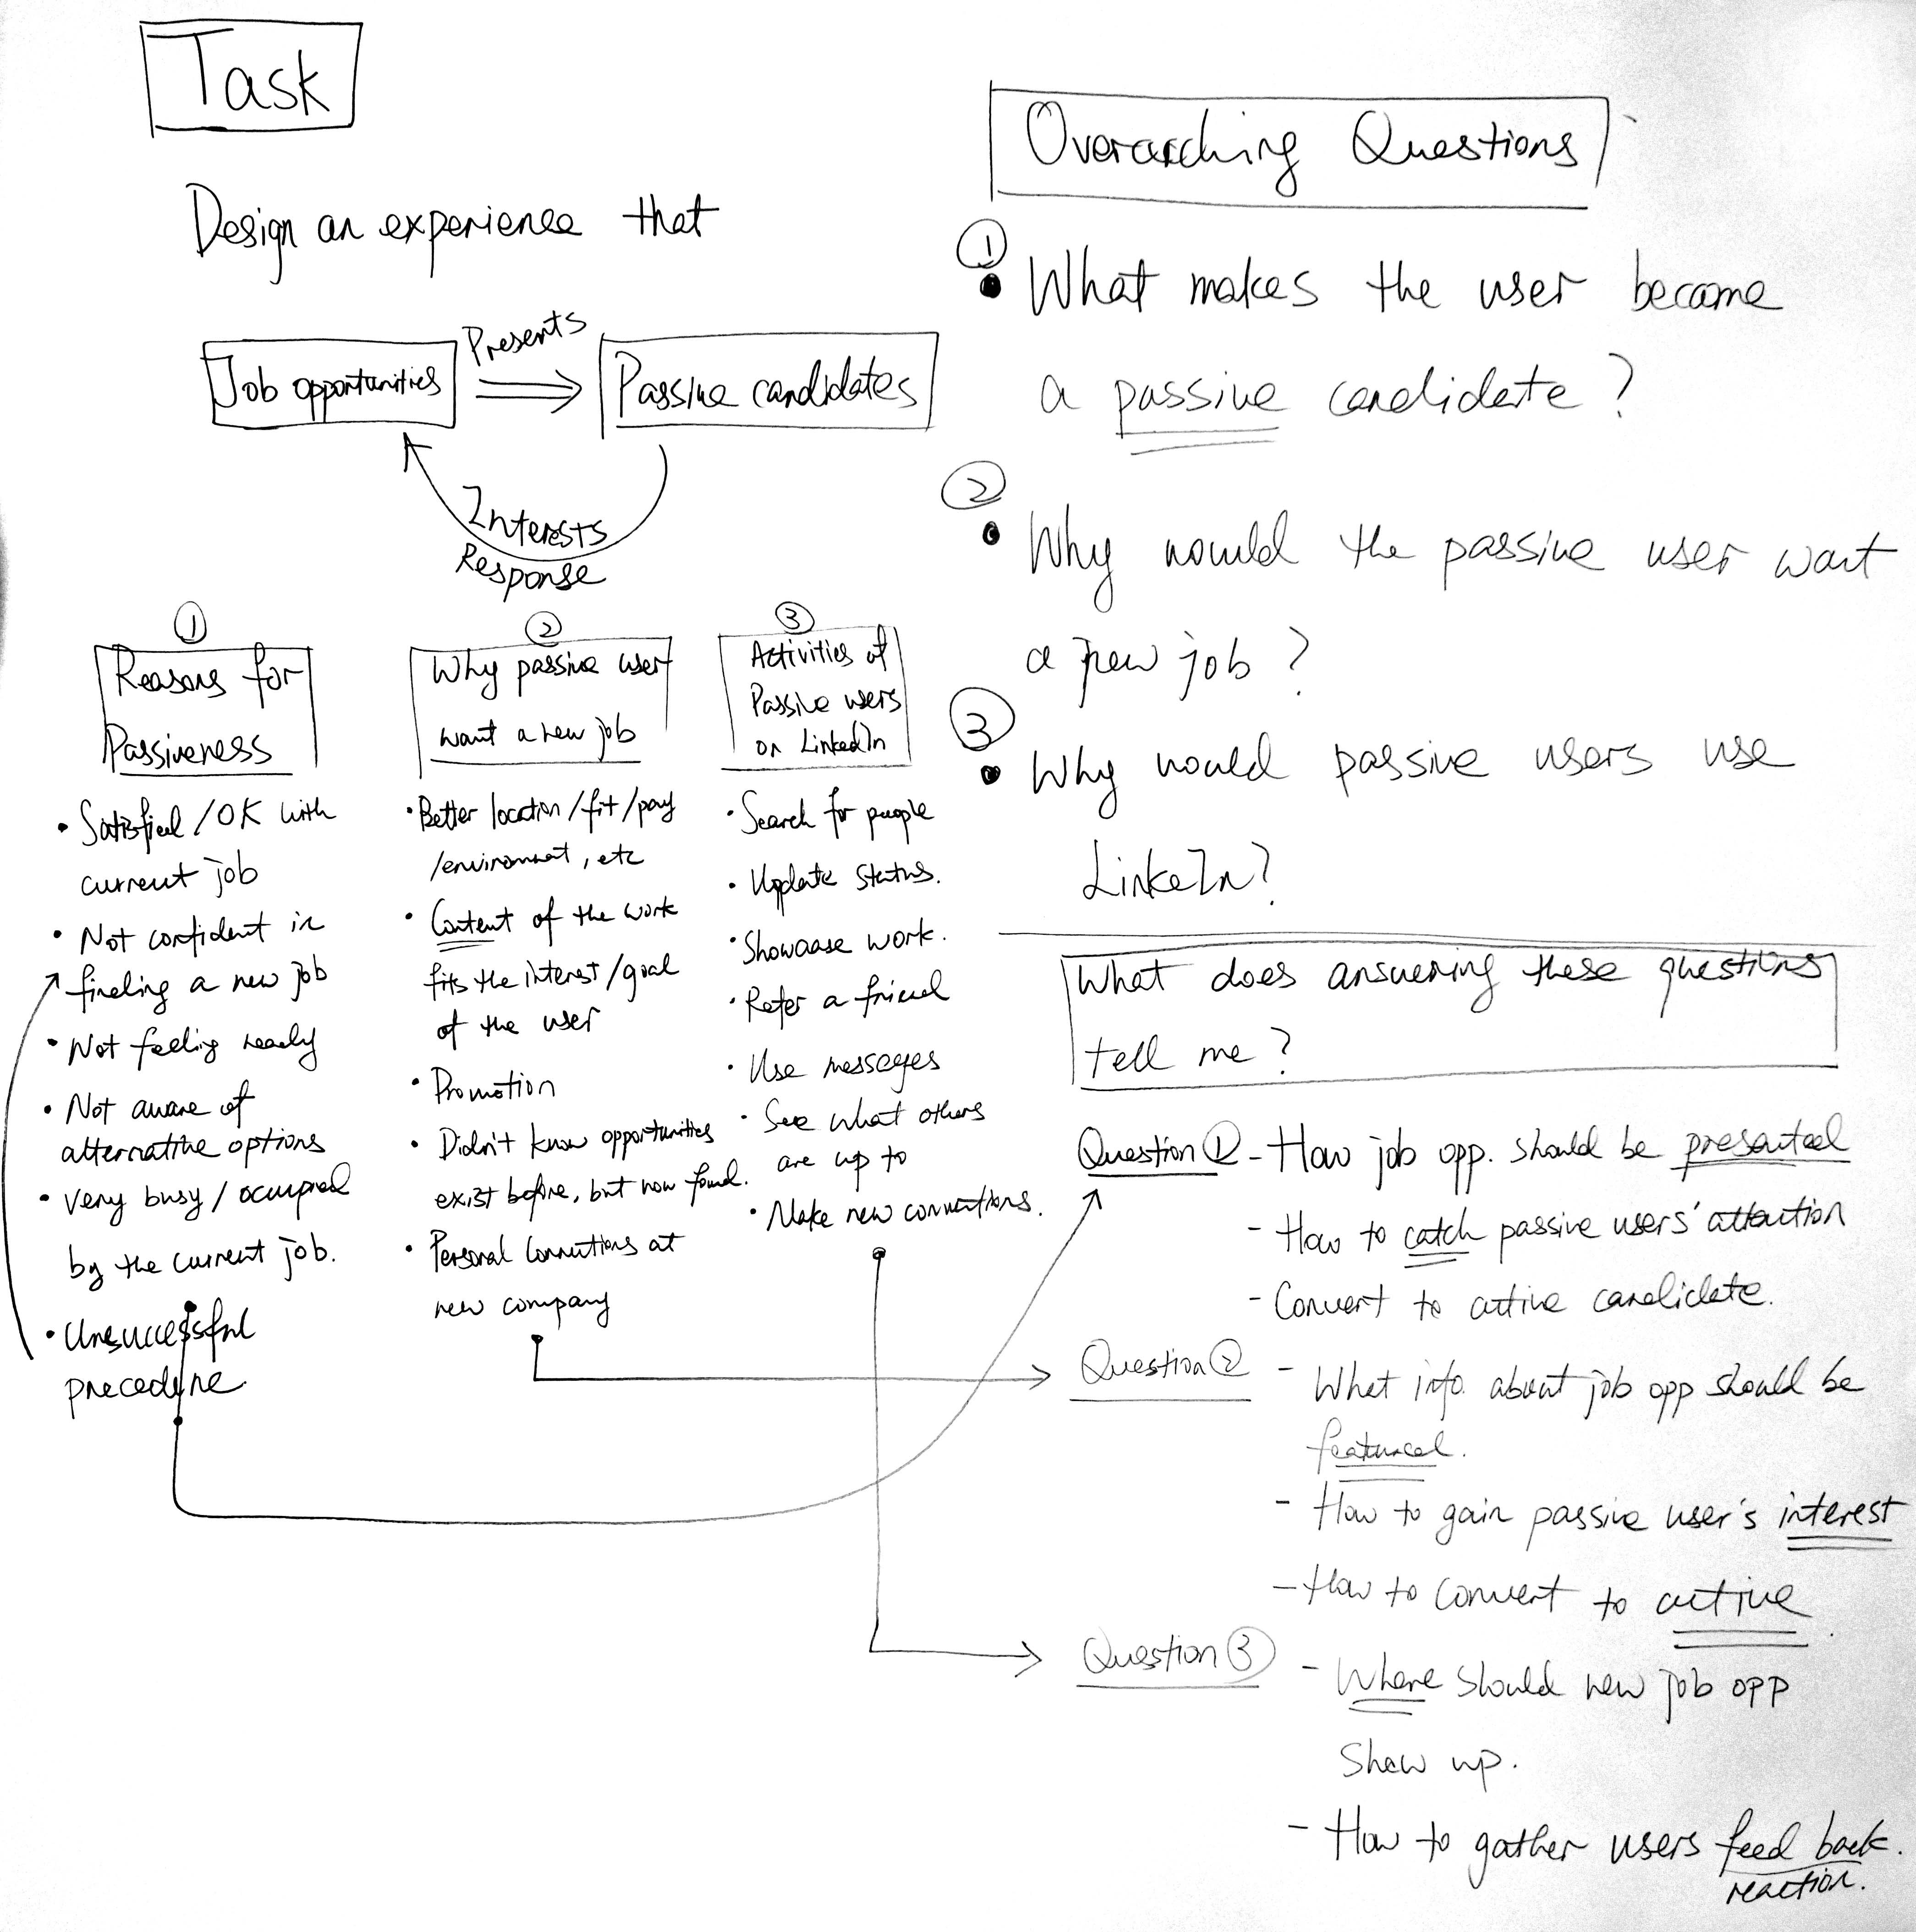 Task
Design an experience that
Job opportunities
Presents
Passive candidates
Interests
Response
①
Reasons for
Passiveness
• Satisfied / OK with
current job
• Not confident in
finding a new job
• Not feeling ready
• Not aware of
alternative options
• Very busy / ocuupied
by the current job.
• Unsuccessful
precedure
②
Why passive user
want a new job
• Better location / fit / pay
/ environment, etc
• Content of the work
fits the interest / goal
of the user
• Promotion
• Didn't know opportunities
exist before, but now found.
• Personal Connections at
new company
③
Activities of
Passive users
on LinkedIn
• Search for people
• Update status.
• Showcase work.
• Refer a friend
• Use messages
• See what others
are up to
• Make new connections.
Overarching Questions
①
• What makes the user become
a passive candidate?
②
• Why would the passive user want
a new job?
③
• Why would passive users use
LinkeIn?
What does answering these questions
tell me?
Question ① - How job opp. should be presented
- How to catch passive users' attention
- Convert to active candidate.
Question ② - What info. about job opp should be
featured.
- How to gain passive user's interest
- How to convert to active
Question ③ - Where should new job opp
show up.
- How to gather users feed back.
reaction.